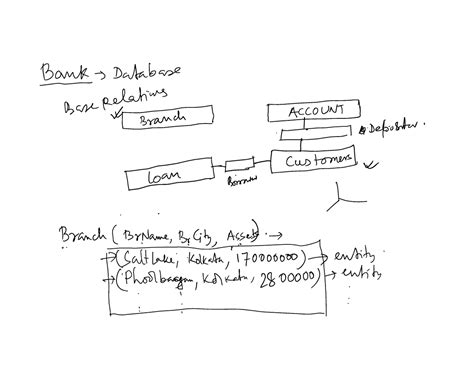 Bank → Database
Base Relations
Branch
ACCOUNT
Depositor.
Loan
Borrower
Customers
Branch (BrName, Br.City, Assets) →
→ (SaltLake, Kolkata, 170000000) → entity
→ (Phoolbagan, Kolkata, 2800000) → entity